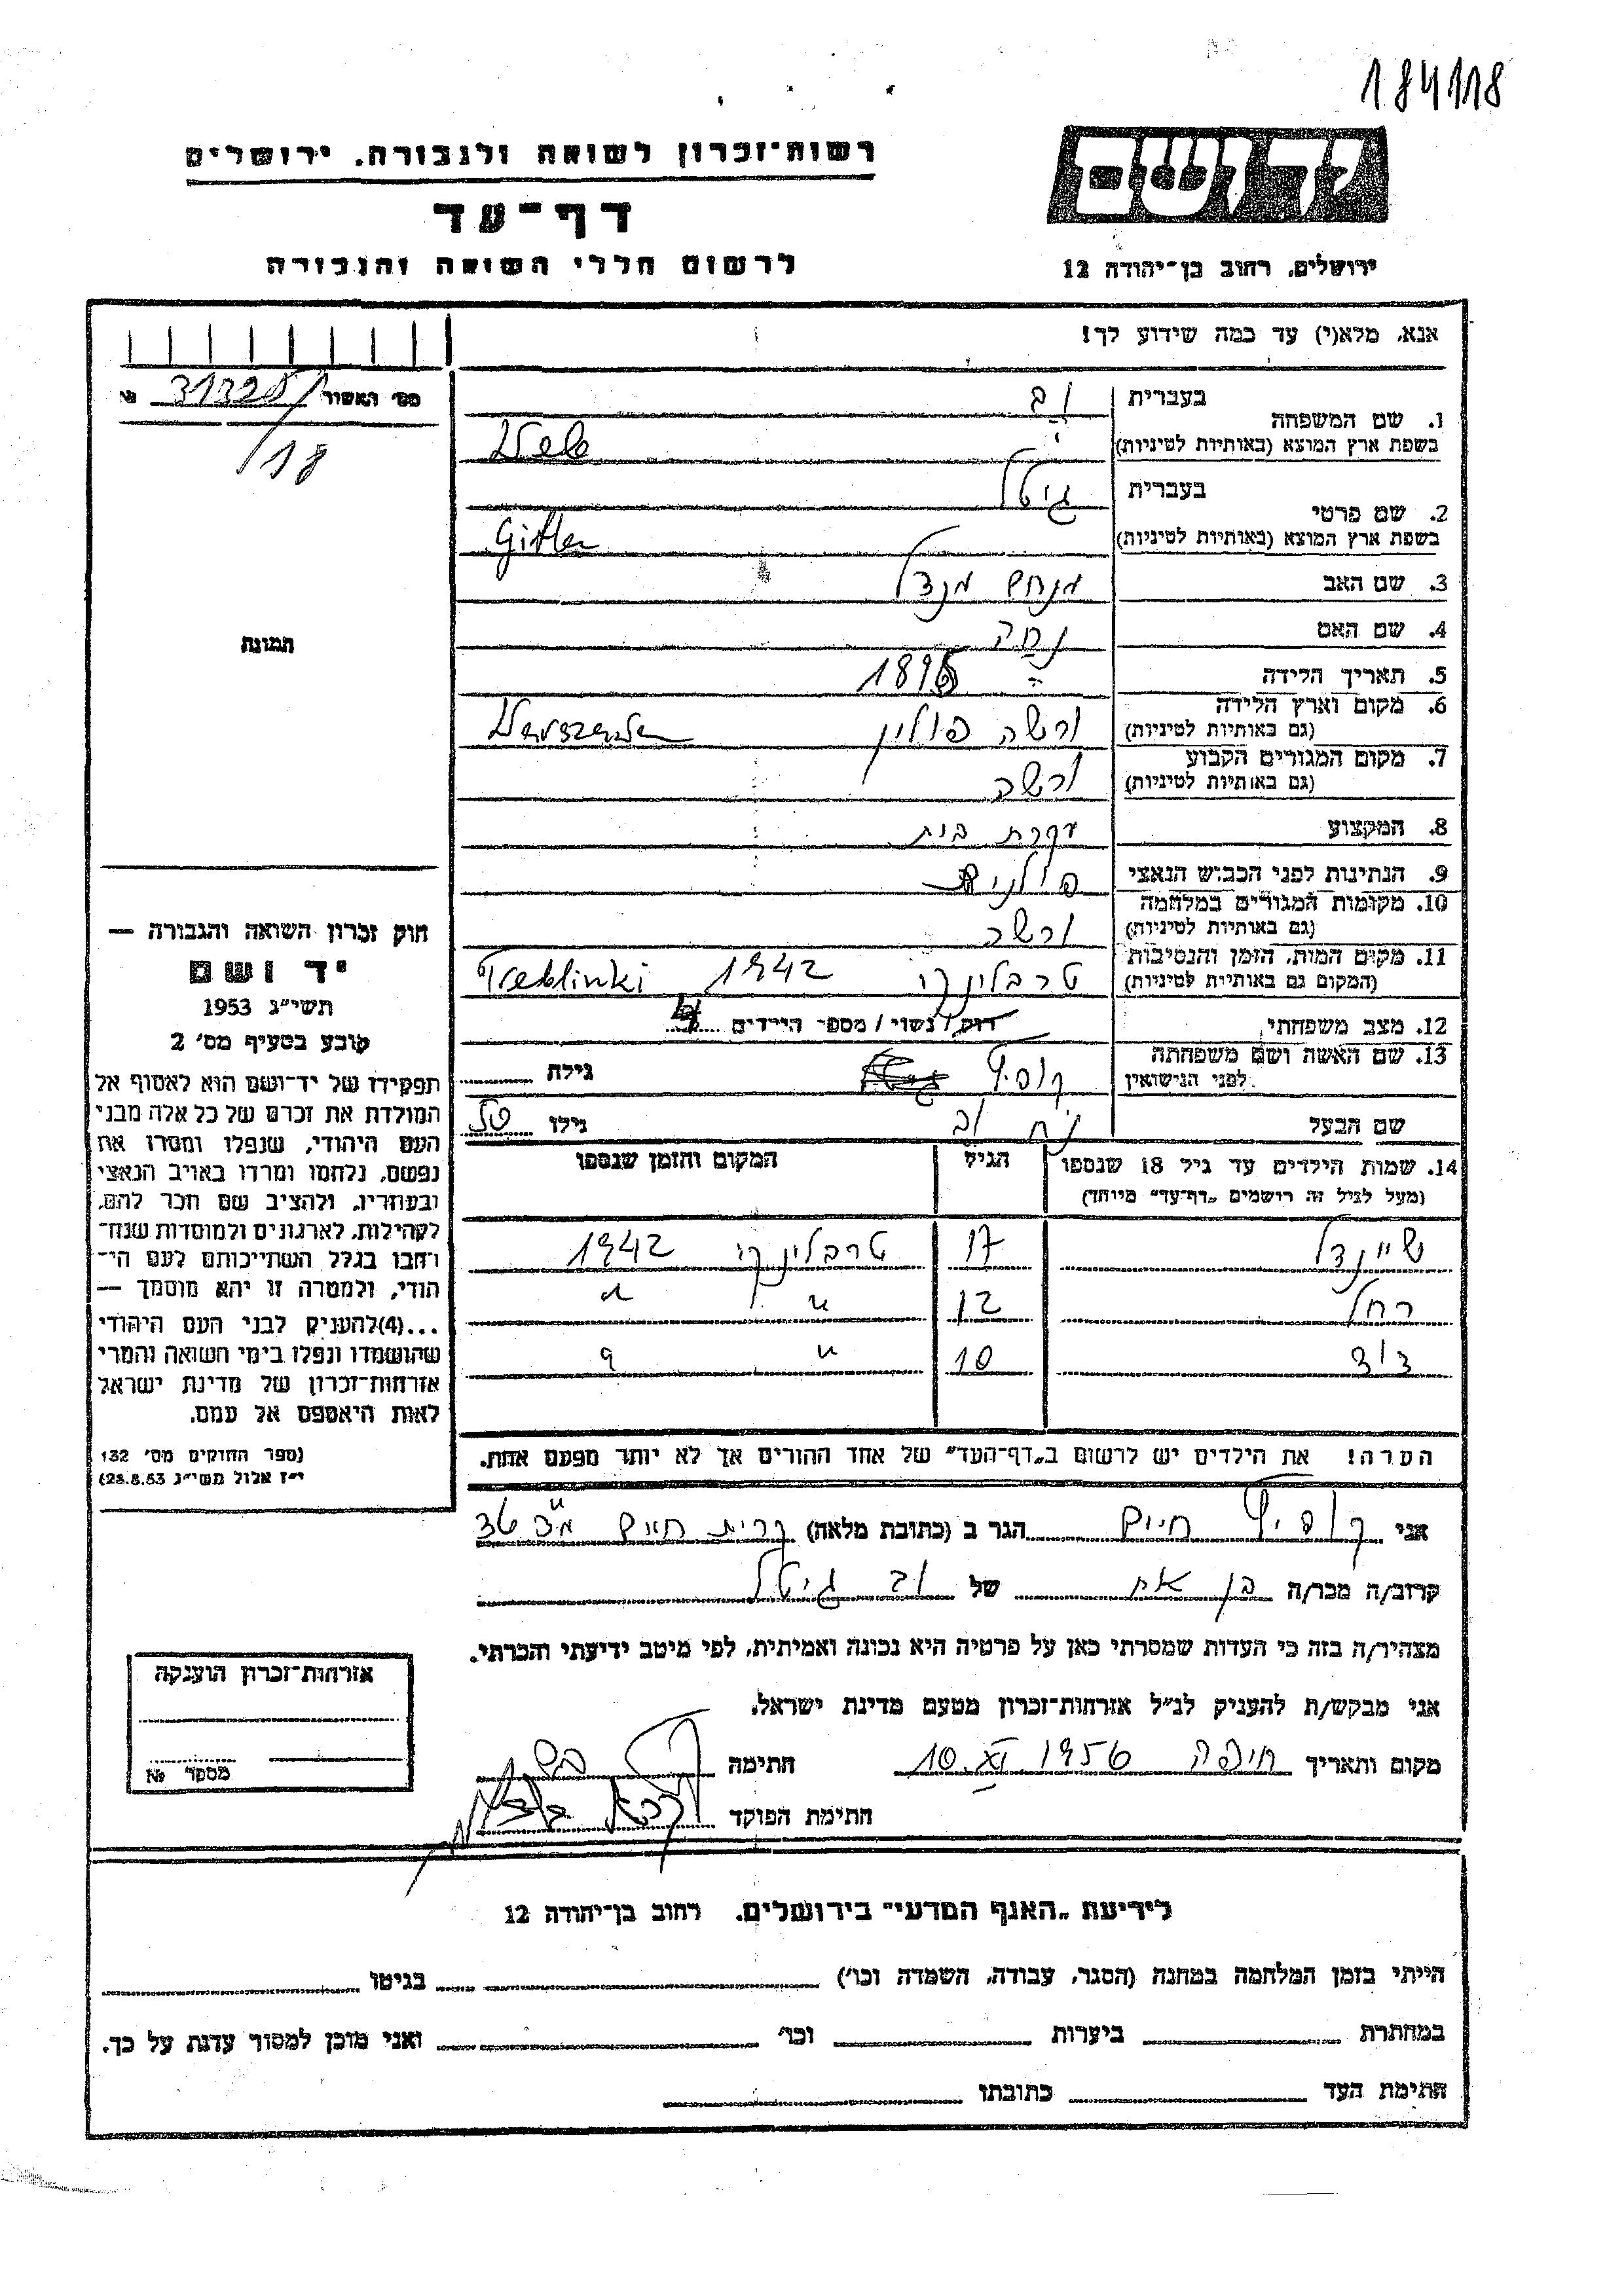 184118
יד ושם
רשות-זכרון לשואה ולגבורה. ירושלים
דף-עד
לרשום חללי השואה והגבורה
ירושלים, רחוב בן-יהודה 12
אנא, מלא(י) עד כמה שידוע לך!
1. שם המשפחה
בעברית וב
בשפת ארץ המוצא (באותיות לטיניות) Web
2. שם פרטי
בעברית גיטל
בשפת ארץ המוצא (באותיות לטיניות) Gitler
3. שם האב מנחם מנדל
4. שם האם
5. תאריך הלידה 1896
6. מקום וארץ הלידה
(גם באותיות לטיניות) ורשה פולין Warszawa
7. מקום המגורים הקבוע
(גם באותיות לטיניות) ורשה
8. המקצוע עקרת בית
9. הנתינות לפני הכבוש הנאצי
10. מקומות המגורים במלחמה
(גם באותיות לטיניות) ורשה
11. מקום המות, הזמן והנסיבות
(המקום גם באותיות לטיניות) טרבלינקי 1942 Treblinki
12. מצב משפחתי רוק / נשוי / מספר הילדים
13. שם האשה ושם משפחתה
לפני הנישואין גילה
שם הבעל וב גילו
14. שמות הילדים עד גיל 18 שנספו
(מעל לגיל זה רושמים "דף-עד" מיוחד)
הגיל
המקום והזמן שנספו
שיינדל 17 טרבלינקי 1942
רחל 12 " "
דוד 10 " "
הערה! את הילדים יש לרשום ב"דף-העד" של אחד ההורים אך לא יותר מפעם אחת.
אני חיים הגר ב (כתובת מלאה) קרית חיים
קרוב/ה מכר/ה בן אח של וב גיטל
מצהיר/ה בזה כי העדות שמסרתי כאן על פרטיה היא נכונה ואמיתית, לפי מיטב ידיעתי והכרתי.
אני מבקש/ת להעניק לנ"ל אזרחות-זכרון מטעם מדינת ישראל.
מקום ותאריך חיפה 10.XI 1956 חתימה
חתימת הפוקד
מס' האשור 31328/ №
/18
תמונת
חוק זכרון השואה והגבורה —
יד ושם
תשי"ג 1953
קובע בסעיף מס' 2
תפקידו של יד-ושם הוא לאסוף אל
המולדת את זכרם של כל אלה מבני
העם היהודי, שנפלו ומסרו את
נפשם, נלחמו ומרדו באויב הנאצי
ובעוזריו, ולהציב שם וזכר להם,
לקהילות, לארגונים ולמוסדות שנח-
רבו בגלל השתייכותם לעם הי-
הודי, ולמטרה זו יהא מוסמך —
...(4)להעניק לבני העם היהודי
שהושמדו ונפלו בימי השואה והמרי
אזרחות-זכרון של מדינת ישראל
לאות היאספם אל עמם.
(ספר החוקים מס' 132
י"ז אלול תשי"ג 28.8.53)
אזרחות-זכרון הוענקה
מספר №
לידיעת "האגף המדעי" בירושלים. רחוב בן-יהודה 12
הייתי בזמן המלחמה במחנה (הסגר, עבודה, השמדה וכו') בגיטו
במחתרת ביערות וכו' ואני מוכן למסור עדות על כך.
חתימת העד כתובתו